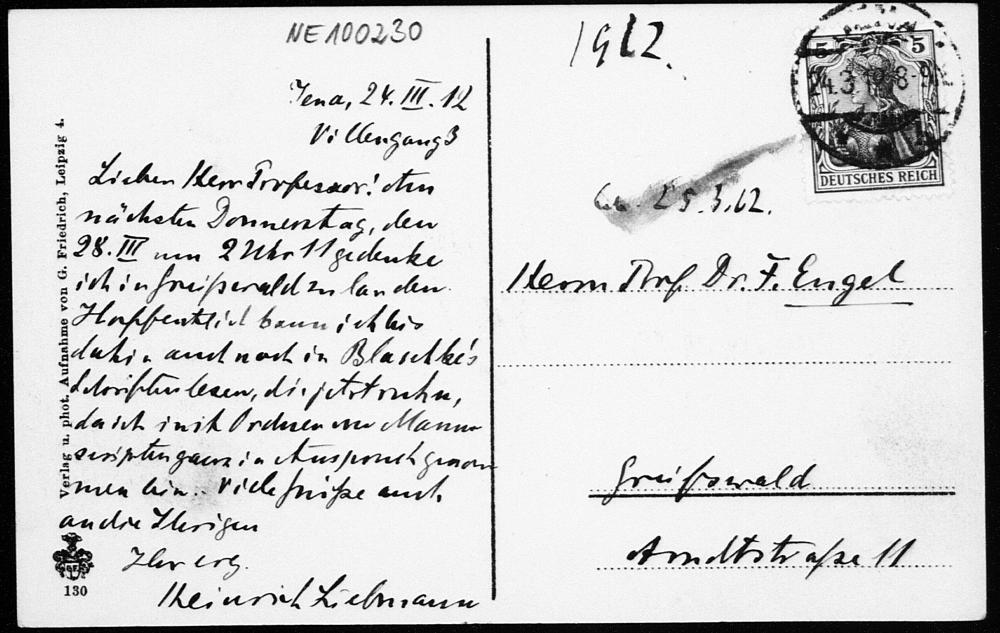 NE100230
1912.
Jena, 24. III. 12
Villengang 3
Lieber Herr Professor! Am
nächsten Donnerstag, den
28. III um 2 Uhr 11 gedenke
ich in Greifswald zu landen.
Hoffentlich kann ich bis
dahin auch noch in Blaschke's
Schriften lesen, die jetzt ruhn,
da ich mit Ordnen von Manu-
scripten ganz in Anspruch genom
men bin. Viele Grüße auch
an die Ihrigen
Ihr erg.
Heinrich Liebmann
Verlag u. phot. Aufnahme von G. Friedrich, Leipzig 4.
130
5 5
24.3.12 8-9N
DEUTSCHES REICH
25.3.12.
Herrn Prof. Dr. F. Engel
Greifswald
Arndtstraße 11